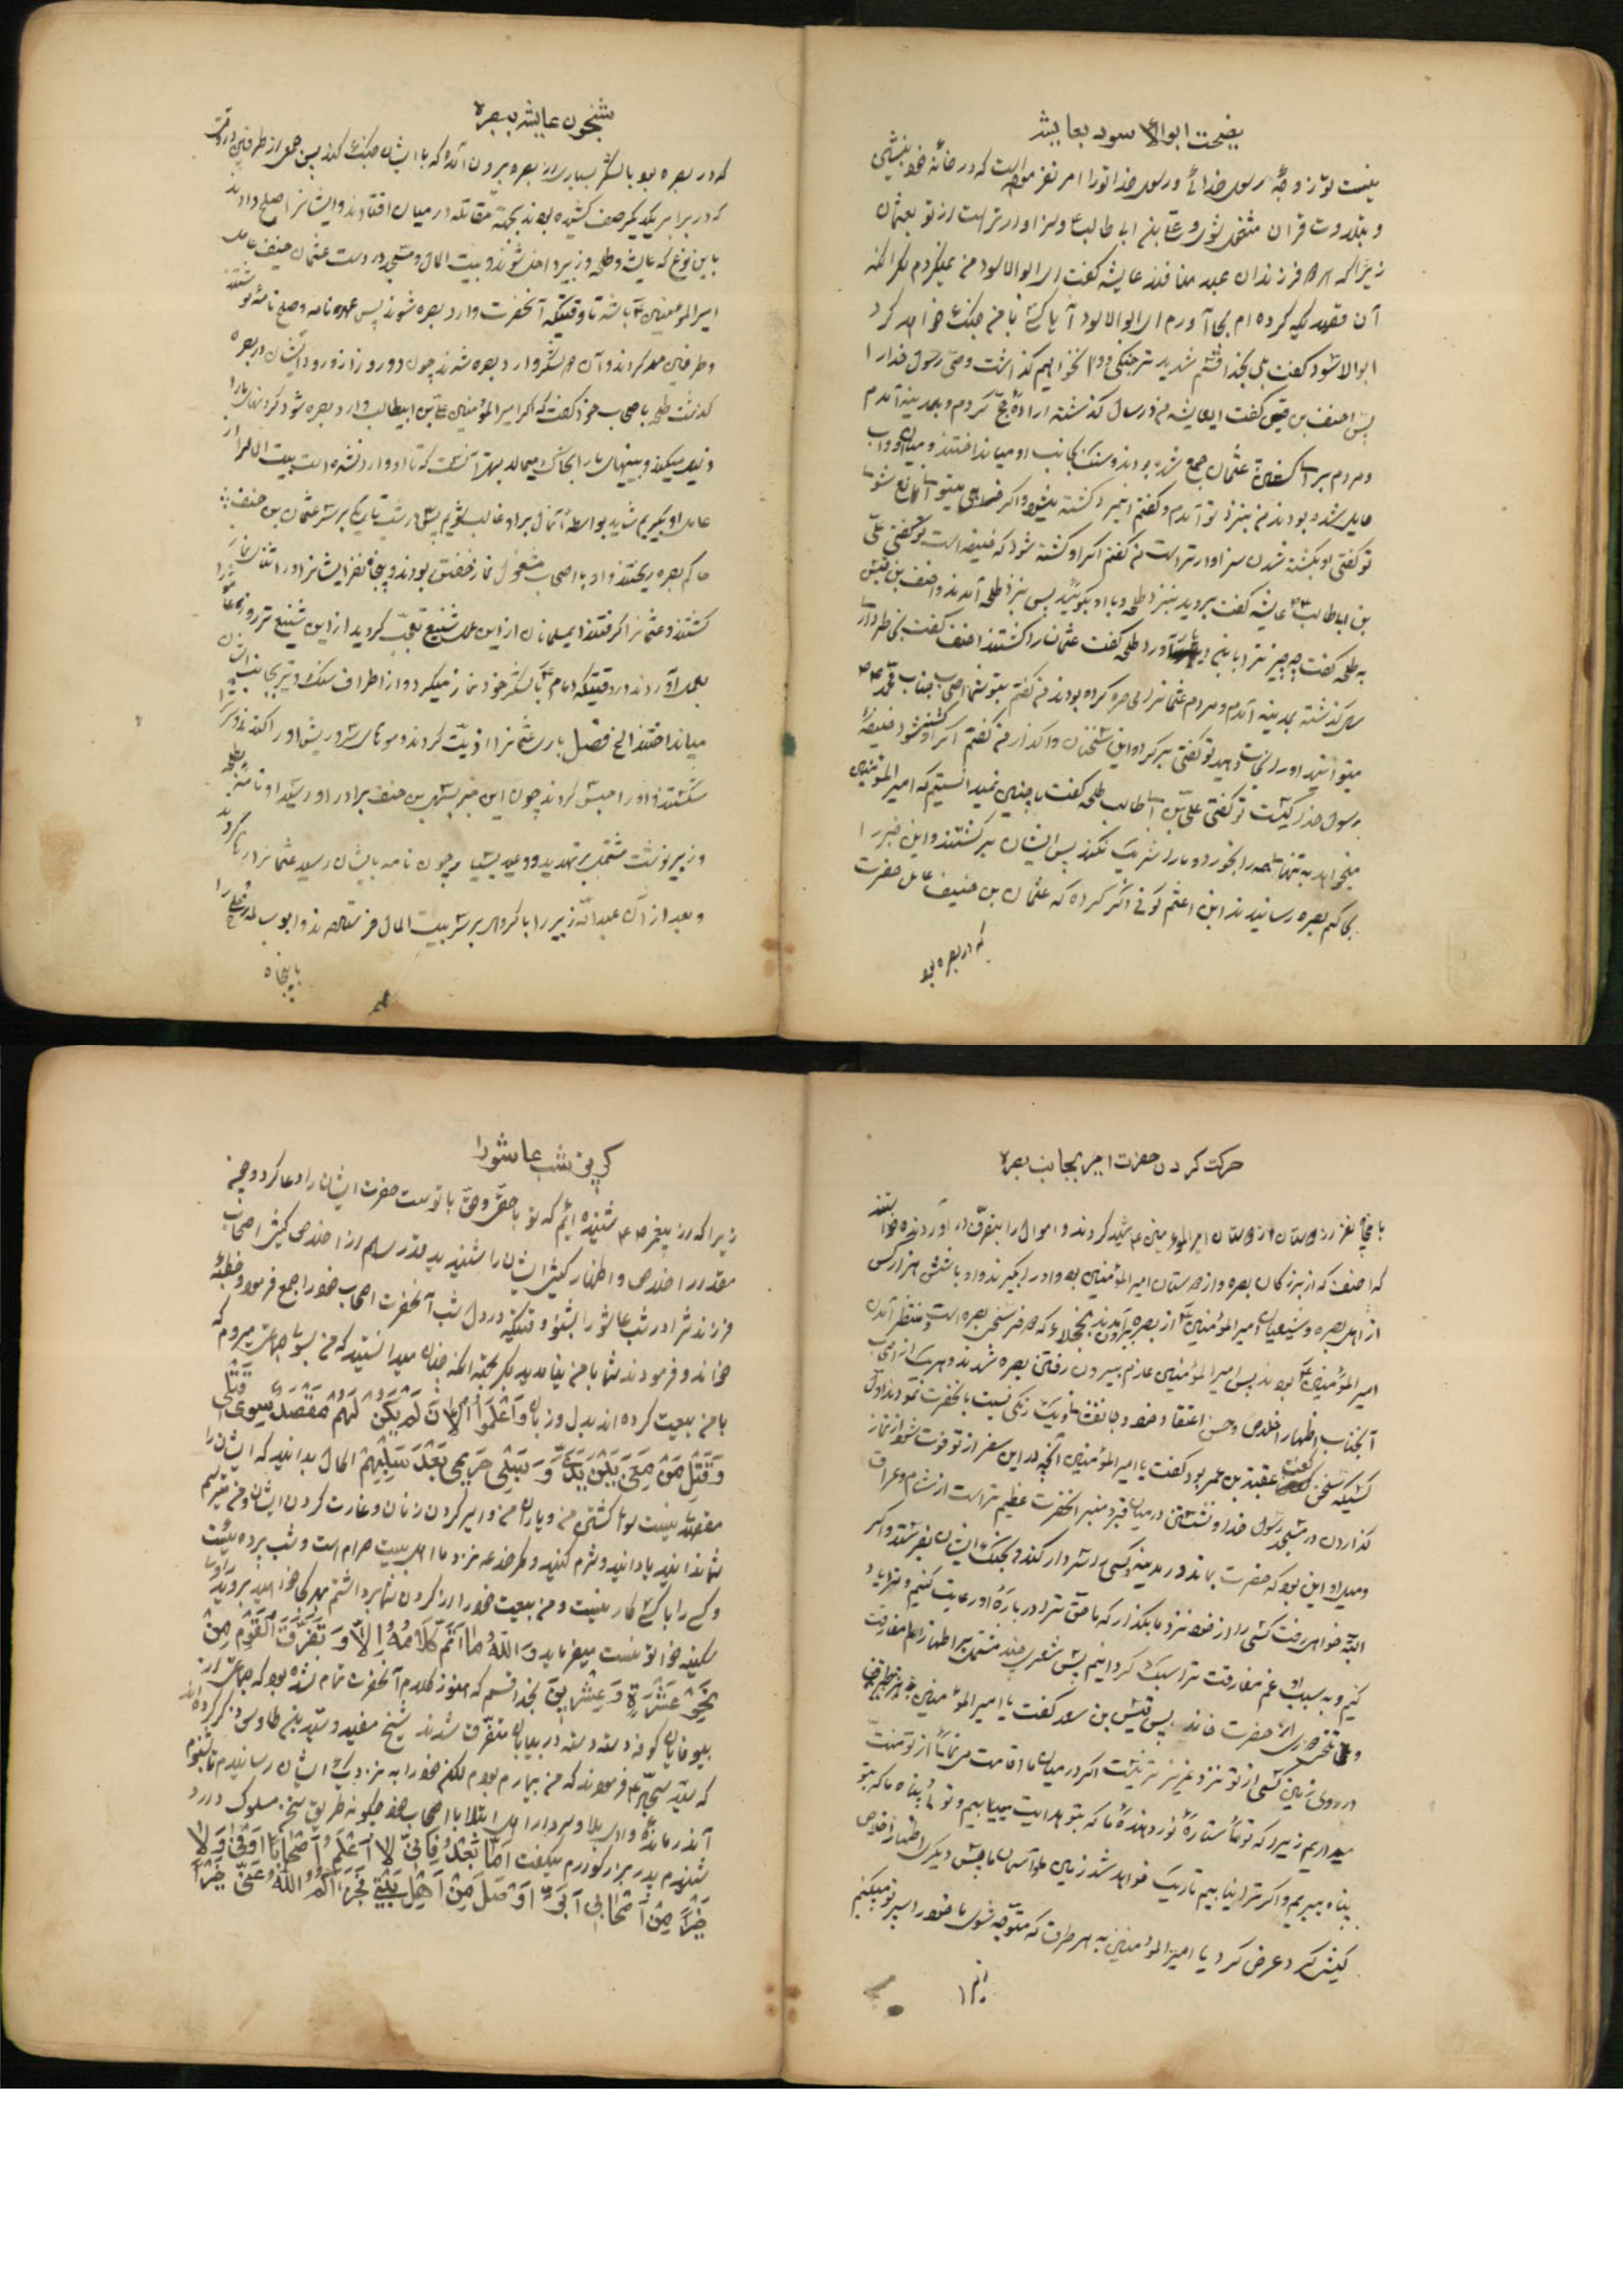 نصیحت ابوالاسود بعایشه
نیست تو زوجهٔ رسول خدائی و رسول خدا تو را امر نفرموده است که در خانه خود بنشینی
و بتلاوت قران مشغول شوی و علی بن ابی طالب سزاوارتر است از تو بعثمان
زیرا که فرزندان عبد مناف‌اند عایشه گفت ای ابوالاسود من بر نمیگردم مگر آنکه
آن قصد که کرده‌ام بجا آورم ای ابوالاسود آیا کسی با من جنگ خواهد کرد
ابوالاسود گفت بلی بخدا قسم شدیدتر جنگی و نخواهیم گذاشت وصی رسول خدا را
پس احنف بن قیس گفت ای عایشه من در سال گذشته ارادهٔ حج کردم و بمدینه آمدم
و مردم بر سر عثمان جمع شده بودند و سنگ بجانب او میانداختند و میان او و آب
حایل شده بودند من بنزد تو آمدم و گفتم این مرد کشته میشود و اگر
تو گفتی او بکشته شدن سزاوارتر است من گفتم اگر او کشته شود که خلیفه است تو گفتی علی
بن ابیطالب عایشه گفت بروید بنزد طلحه و با او بگوئید پس بنزد طلحه آمدند و احنف بن قیس
به طلحه گفت چه چیز ترا باین دیار آورد طلحه گفت عثمان را کشتند احنف گفت بخاطر داری
سال گذشته بمدینه آمدم و مردم عثمان را محاصره کرده بودند من گفتم بتو شما اصحاب جناب محمد ص
میتوانید او را نجات دهید تو گفتی برگرد و این سخنان واگذار من گفتم اگر او کشته شود خلیفهٔ
رسول خدا کیست تو گفتی علی بن ابیطالب طلحه گفت ما چنین نمیدانستیم که امیرالمؤمنین
میخواهد به تنهائی همه را بخورد و ما را شریک نکند پس ایشان برگشتند و این خبر را
بحاکم بصره رسانیدند ابن اعثم کوفی ذکر کرده که عثمان بن حنیف عامل حضرت
که در بصره بود
شبخون عایشه ببصره
که در بصره بود با لشکر بسیاری از بصره بیرون آمد که با ایشان جنگ کند پس جمعی از طرفین در وقت
که در برابر یکدیگر صف کشیده بودند بجهة مقاتله در میان افتادند و ایشانرا صلح دادند
باین نوع که عایشه و طلحه و زبیر داخل شوند و بیت المال و مسجد در دست عثمان حنیف عامل
امیرالمؤمنین باشد تا وقتیکه آنحضرت وارد بصره شوند پس عهدنامه و صلح نامه نوشتند
و طرفین عمل کردند و آن لشکر وارد بصره شدند چون دو روز از ورود ایشان در بصره
گذشت طلحه باصحاب خود گفت که اگر امیرالمؤمنین علی بن ابیطالب وارد بصره شود گردنهای ما را
ذلیل میکند و بینیهای ما را بخاک میمالد بهتر آنست که تا او وارد نشده است بیت المال را از
عامل او بگیریم شاید بواسطهٔ آنمال بر او غالب شویم پس در شب تاریکی بر سر عثمان بن حنیف
حاکم بصره ریختند و او با اصحاب مشغول نماز خفتن بودند و پنجاه نفر ایشانرا در اثنای نماز
کشتند و عثمانرا گرفتند ایمسلمانان از این عمل شنیع تعجب کردید از این شنیع‌تر روز عاشورا
بعمل آوردند در وقتیکه امام با لشکر خود نماز میکرد و از اطراف سنگ و تیر بجانب ایشان
میانداختند الخ فصل باری عثمانرا اذیت کردند و موهای سر و ریش او را کندند و سرش را
شکستند و او را حبس کردند چون این خبر بسهل بن حنیف برادر او رسید او نامهٔ بطلحه
و زبیر نوشت مشتمل بر تهدید و وعید بسیار چون نامه بایشان رسید عثمانرا رها کردند
و بعد از آن عبدالله زبیر را با گروهی بر سر بیت المال فرستادند و ابوسلمه را
با پنجاه
حرکت کردن حضرت امیر بجانب بصره
با پنجاه نفر از دوستان امیرالمؤمنین ع شهید کردند و اموال را بتصرف در آوردند و خواستند
که احنف که از بزرگان بصره و از دوستان امیرالمؤمنین بود او را بگیرند و او با شش هزار کس
از اهل بصره و شیعیان امیرالمؤمنین از بصره بیرون آمدند که در دو فرسخی بصره است و منتظر آمدن
امیرالمؤمنین بودند پس امیرالمؤمنین عازم بیرون رفتن بصره شدند و هر یک از اصحاب
آنجناب اظهار اخلاص و حسن اعتقاد خود و مخالفت ناورزیدن نسبت بآنحضرت نمودند اول
کسیکه سخن گفت عقبة بن عمر بود گفت یا امیرالمؤمنین آنچه در این سفر از تو فوت شود از نماز
گذاردن در مسجد رسول خدا و نشستن در میان قبر و منبر آنحضرت عظیم‌تر است از شام و عراق
و میل او این بود که حضرت بماند در مدینه و کسی را سردار کند و بجنگ ایشان بفرستد و اگر
البته خواهی رفت کسی را از خود نزد ما بگذار که ما حق ترا درباره او رعایت کنیم و ترا یاد
کنیم و به سبب او غم مفارقت ترا سبک گردانیم پس شعری چند مشتمل بر اظهار الم مفارقت
و تلخی دوری از حضرت خواند پس قیس بن سعد گفت یا امیرالمؤمنین
در روی زمین کسی از تو نزد ما عزیزتر نیست اگر در میان ما اقامت فرمائی از تو منت
میداریم زیرا که توئی ستارهٔ نور دهندهٔ ما که بتو هدایت میابیم و توئی پناه ما که بتو
پناه میبریم و اگر ترا نیابیم تاریک خواهد شد زمین و آسمان ما پس دیگری اظهار اخلاص
کیشی کرد عرض کرد یا امیرالمؤمنین به هر طرف که متوجه شوی ما خود را سپر تو میکنیم
گریز بشب عاشورا
زیرا که از پیغمبر ص شنیده‌ایم که تو با حقی و حق با توست حضرت ایشان را دعا کرد و چه
مقدار اخلاص و اظهار کیش ایشان را شنیدید قدری هم از اخلاص کیش اصحاب
فرزندش را در شب عاشورا بشنو وقتیکه در دل شب آنحضرت اصحاب خود را جمع فرمود و خطبهٔ
خواند و فرمودند شما با من نیامدید مگر بجهة آنکه چنان میدانستید که من بسوی جماعتی میروم که
با من بیعت کرده‌اند بدل و زبان وَاعْلَمُوا الْآنَ لَمْ یَکُنْ لَهُمْ مَقْصَدٌ سِوی قَتْلی
وَقَتْلِ مَنْ مَعی بَیْنَ یَدَیَّ وَ سَبْیِ حَریمی بَعْدَ سَلْبِهِمْ الحال بدانید که ایشان را
مقصدی نیست سوای کشتن من و یاران من و اسیر کردن زنان و غارت کردن ایشان و من میترسم
شما ندانید یا دانید و شرم کنید و مکر و خدعه نزد ما اهل بیت حرام است و شب پرده ایست
و کسی را با کسی کار نیست و من بیعت خود را از گردن شما برداشتم هر کجا خواهید بروید راوی
سکینه خواتونست میفرماید وَاللّهِ ما اَتَمَّ کَلامَهُ اِلاّ وَ تَفَرَّقَ الْقَوْمُ مِنْ
نَحْوِ عَشَرَةٍ وَ عِشْرینَ بخدا قسم که هنوز کلام آنحضرت تمام نشده بود که جماعتی از
بیوفایان کوفه دسته دسته در بیابان متفرق شدند شیخ مفید و سید بن طاوس ذکر کرده‌اند
که سید سجاد ع فرمودند که من بیمار بودم لکن خود را به نزدیک ایشان رسانیدم تا بشنوم
آندرمانده وادی بلا و سردار اهل ابتلا با اصحاب خود چگونه طریق سخن مسلوک دارد
شنیدم پدر بزرگوارم میگفت اَمّا بَعْدُ فَاِنّی لا اَعْلَمُ اَصْحاباً اَوْفی وَلا
خَیْراً مِنْ اَصْحابی اَبَرَّ اَوْصَلَ مِنْ اَهْلِ بَیْتی فَجَزاکُمُ اللّهُ عَنّی خَیْراً